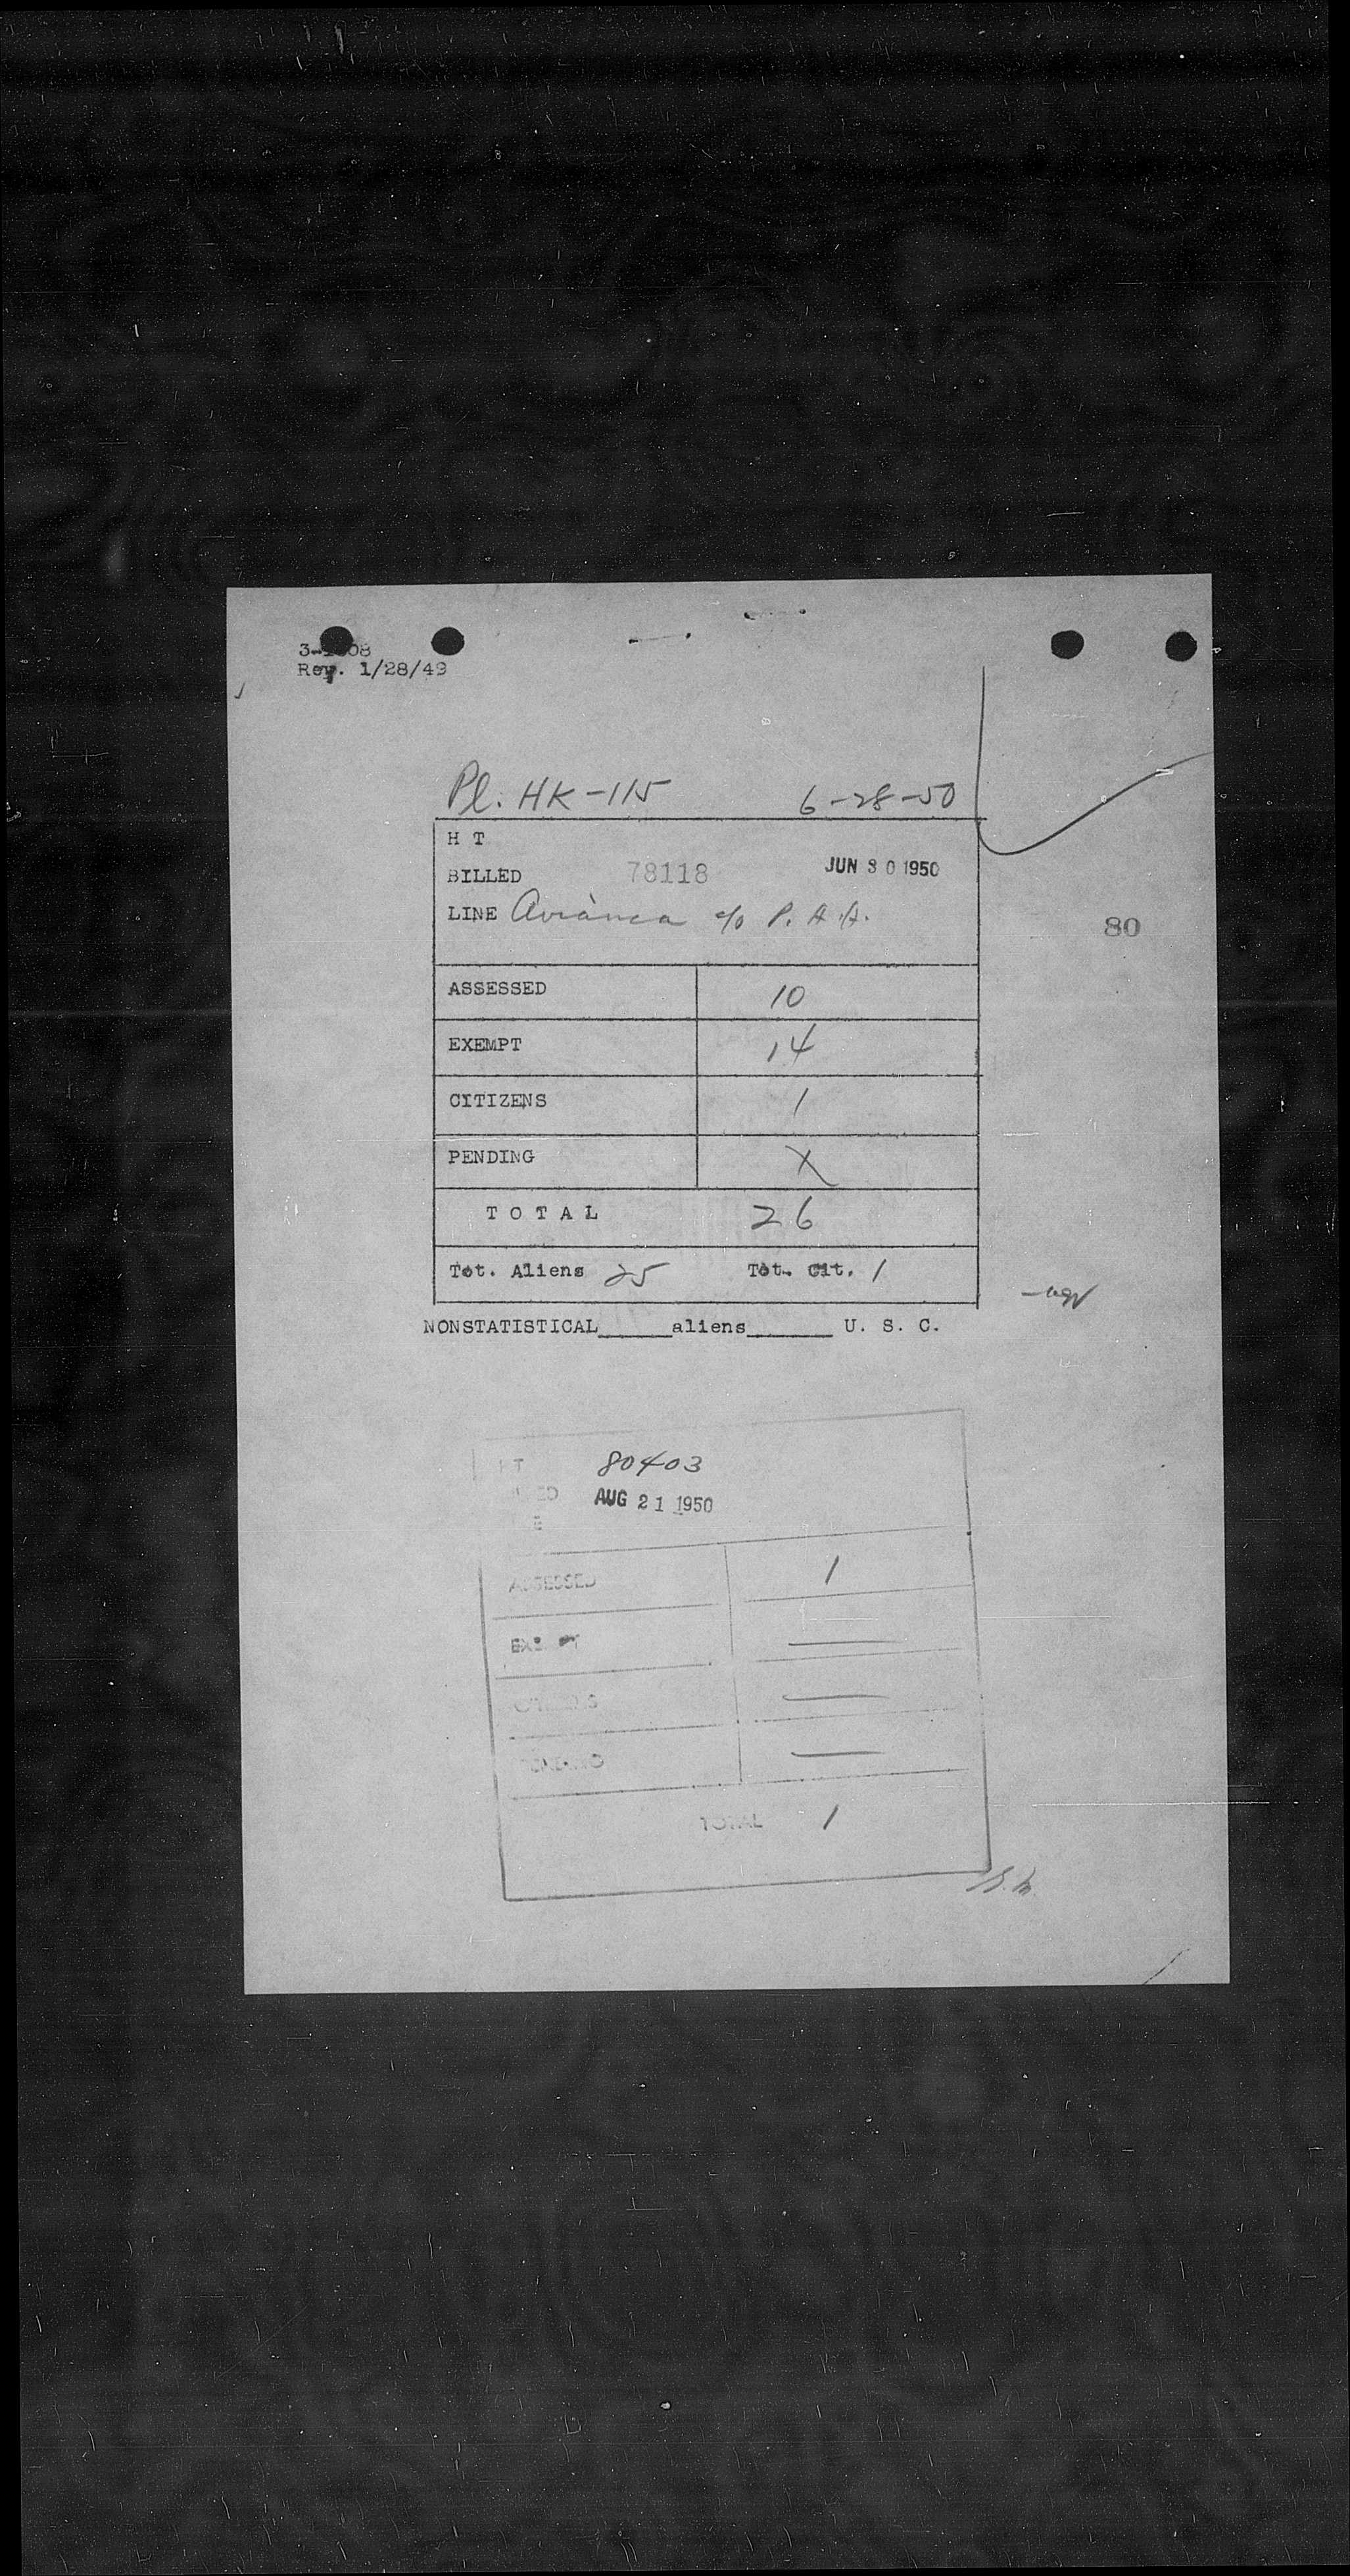 Rev. 1/28/49
Pl. HK-115 6-28-50
H T
BILLED 78118 JUN 30 1950
LINE Avianca c/o P. A. A.
80
ASSESSED 10
EXEMPT 14
CITIZENS 1
PENDING X
TOTAL 26
Tot. Aliens 25 Tot. Cit. 1
NONSTATISTICAL______aliens_______ U. S. C.
80403
AUG 21 1950
ASSESSED 1
EXEMPT —
—
PENDING —
TOTAL 1